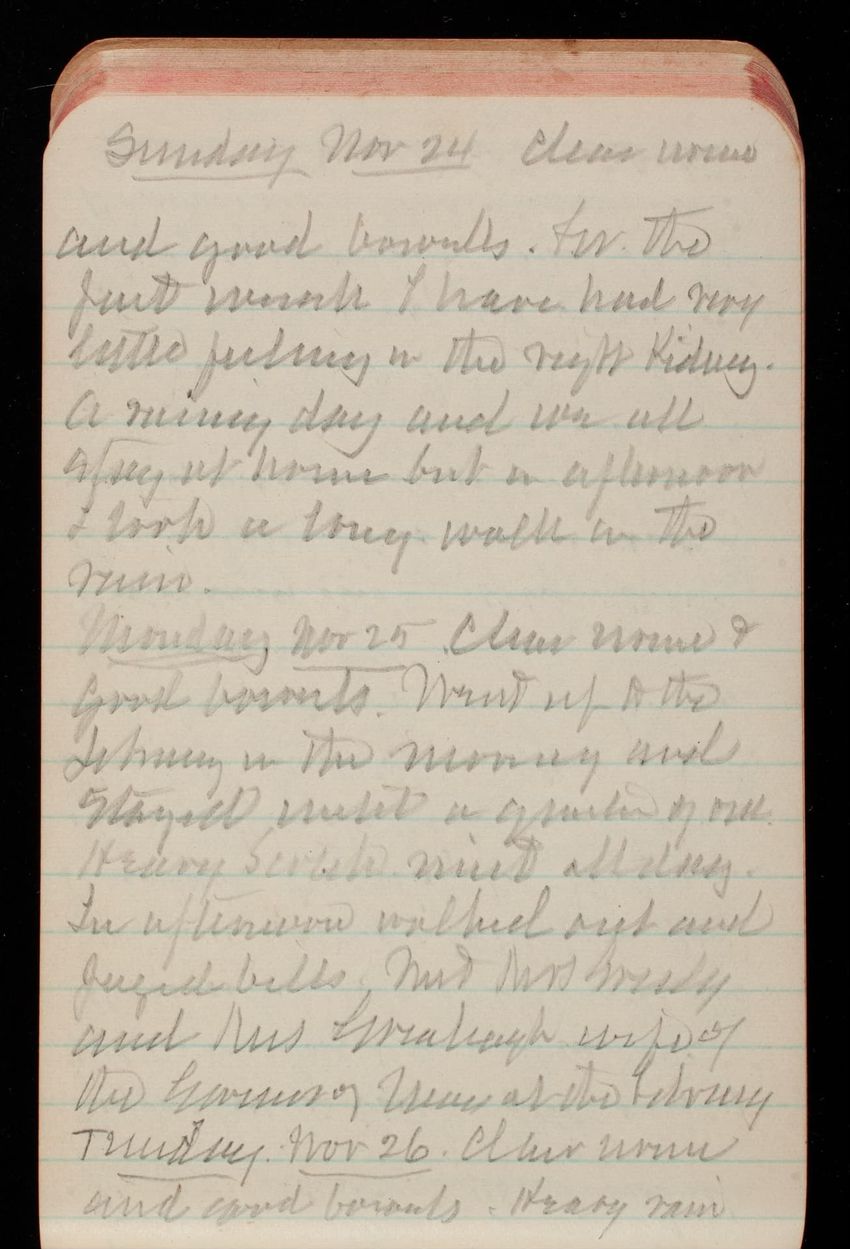 Sunday Nov 24 Clear urine
and good bowels. For the
past week I have had very
little feeling in the right Kidney.
A rainy day and we all
stay at home but in afternoon
I took a long walk in the
rain.
Monday Nov 25 Clear urine &
good bowels. Went up to the
Library in the morning and
stayed until a quarter of one.
Heavy Scotch mist all day.
In afternoon walked out and
payed bills. Met Mrs
and Mrs wife of
the Governor of at the Library
Tuesday. Nov 26. Clear urine
and good bowels. Heavy rain